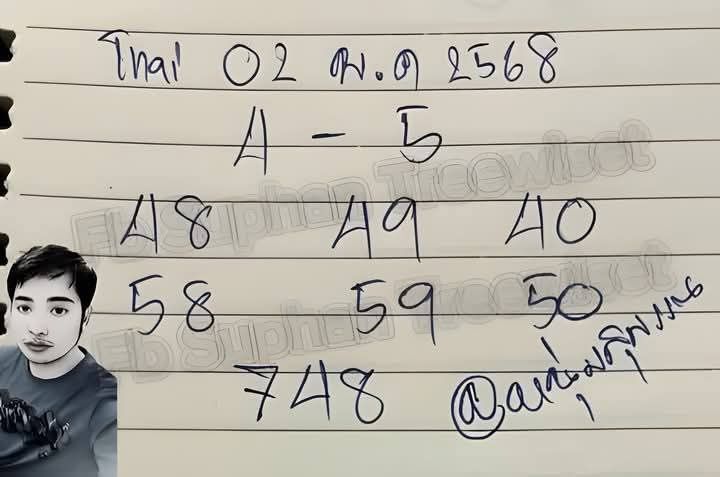 Thai 02 พ.ค 2568
4 - 5
48 49 40
Fb Suphan Treewiset
58 59 50
Fb Suphan Treewiset
748